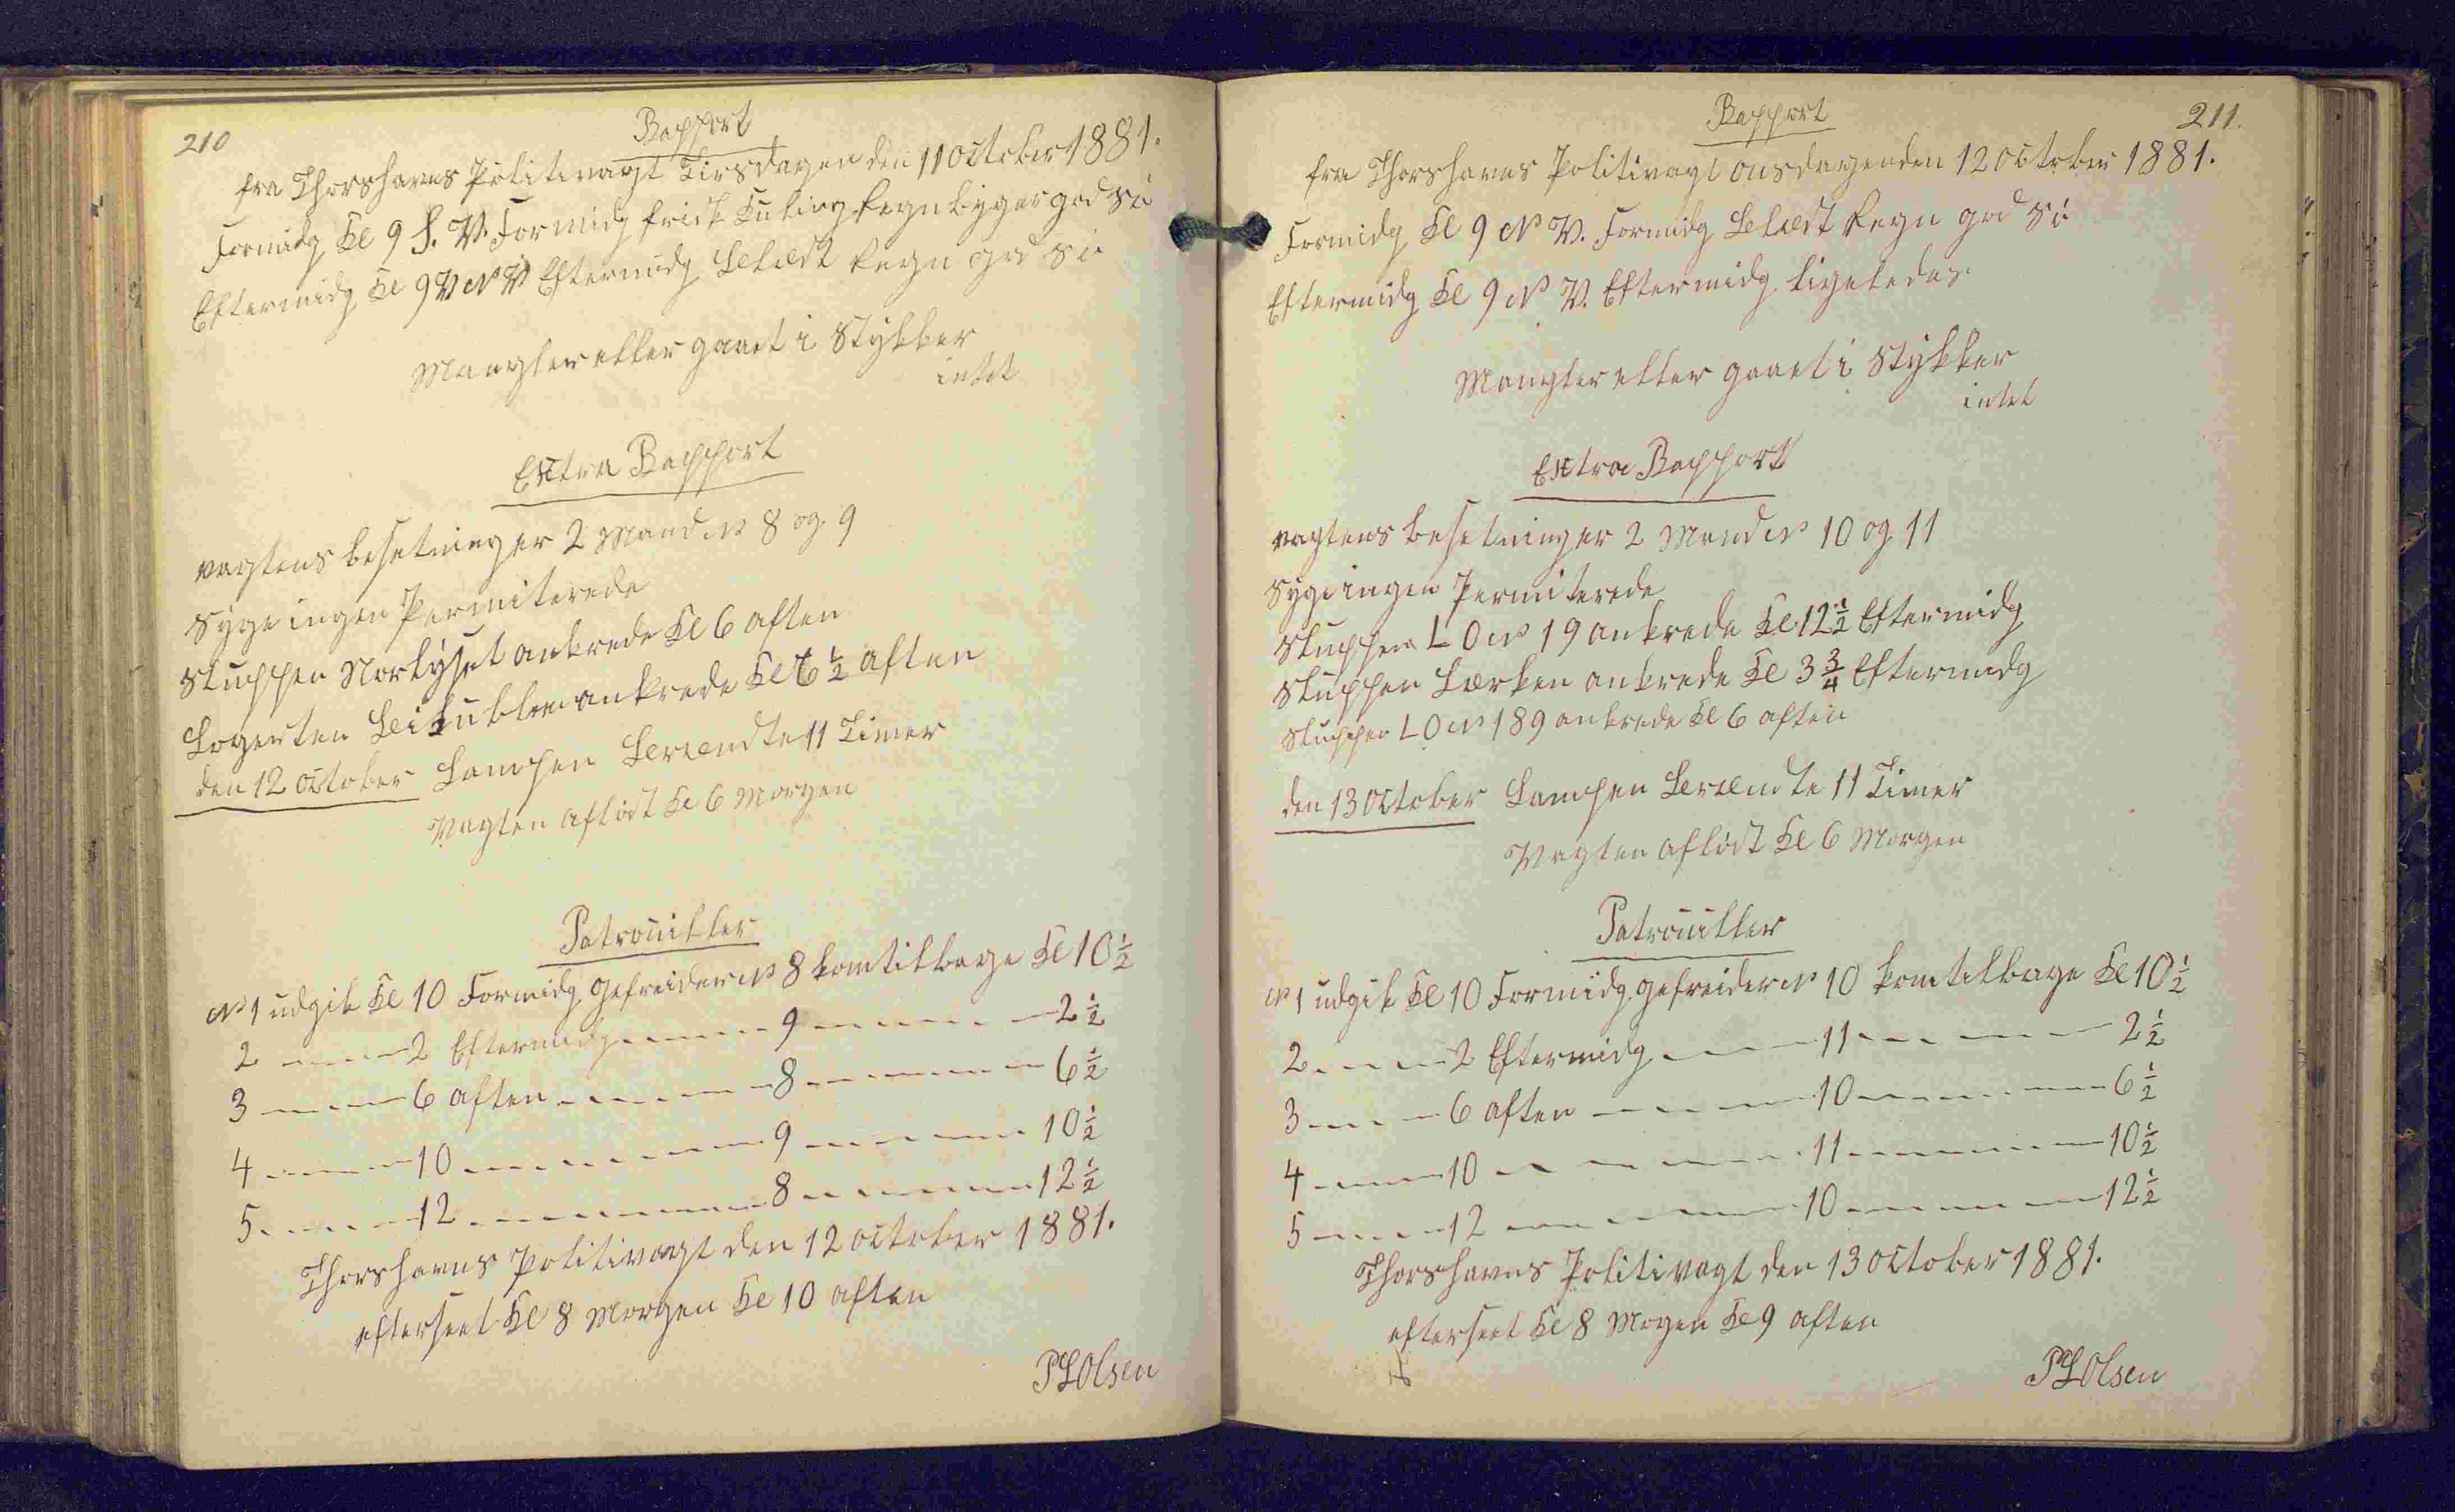 210
Rapport
fra Thorshavns Politivagt Tirsdagen den 11 October 1881.
Formidg Kl 9 S. V. Formidg frisk Kuling Regn byger god Si
Eftermidg Kl 9 V N V Eftermidg Belædt Regn god Si
Mangler eller gaaet i Stykker
intet
Extra Rapport
vagtens besetning er 2 Mand No 8 og 9
Syge ingen Permiterede
Sluppen Norlyset ankrede Kl 6 aften
Kl 6 1/2 aften
den 12 October Lampen Berændte 11 Timer
Vagten afløst Kl 6 Morgen
Patrouiller
No 1 udgik Kl 10 Formidg gefreider No 8 kom tilbage Kl 10 1/2
2 - - - 2 Eftermidg - - - 9 - - - 2 1/2
3 - - - 6 aften - - - 8 - - - 6 1/2
4 - - - 10 - - - 9 - - - 10 1/2
5 - - - 12 - - - 8 - - - 12 1/2
Thorshavns Politivagt den 12 october 1881.
efterseet Kl 8 Morgen Kl 10 aften
PLOlsen
211.
Rapport
fra Thorshavns Politivagt onsdagen den 12 October 1881.
Formidg Kl 9 N V. Formidg Belædt Regn god Si
Eftermidg Kl 9 N V. Eftermidg ligeledes
Mangler eller gaaet i Stykker
intet
Extra Rapport
vagtens besetning er 2 Mand No 10 og 11
Syge ingen Permiterede
Sluppen L O No 19 ankrede Kl 12 1/2 Eftermidg
Sluppen Lærken ankrede Kl 3 3/4 Eftermidg
Sluppen L O No 189 ankrede Kl 6 aften
den 13 October Lampen Berændte 11 Timer
Vagten afløst Kl 6 Morgen
Patrouiller
No 1 udgik Kl 10 Formidg. gefreider No 10 kom tilbage Kl 10 1/2
2 - - - 2 Eftermidg - - - 11 - - - 2 1/2
3 - - - 6 aften - - - 10 - - - 6 1/2
4 - - - 10 - - - 11 - - - 10 1/2
5 - - - 12 - - - 10 - - - 12 1/2
Thorshavns Politivagt den 13 October 1881.
efterseet Kl 8 Mogen Kl 9 aften
PLOlsen